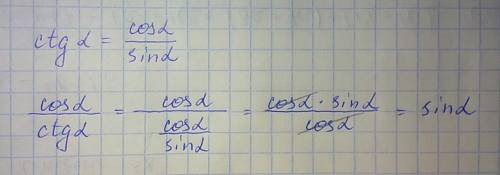 ctg α = cosα / sinα
cosα / ctg α = cosα / (cosα / sinα) = cosα · sinα / cosα = sinα